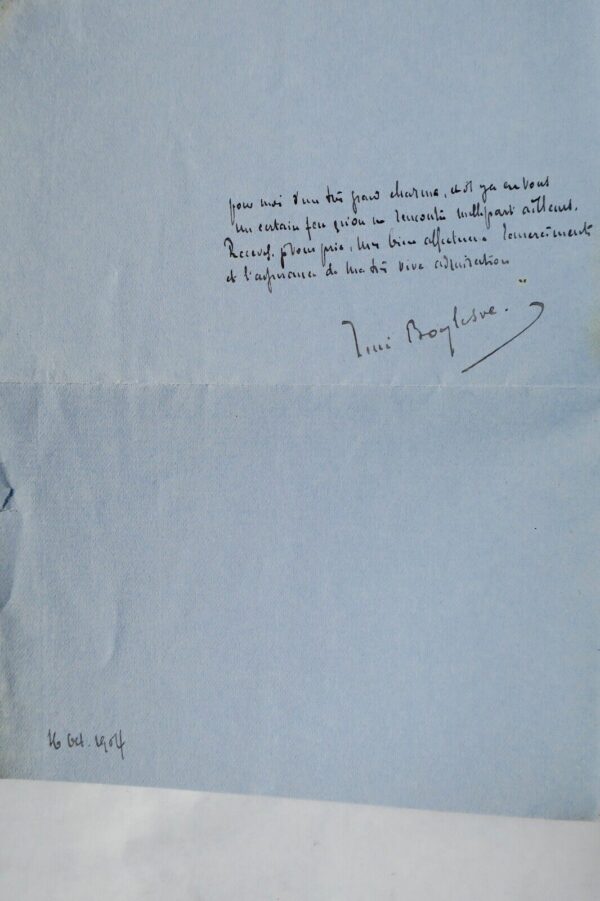 pour moi d'un très grand charme, et il y a en vous
un certain feu qu'on ne rencontre nullepart ailleurs.
Recevez, je vous prie, mes bien affectueux remerciements
et l'assurance de ma très vive admiration
René Boylesve.
16 Oct. 1904